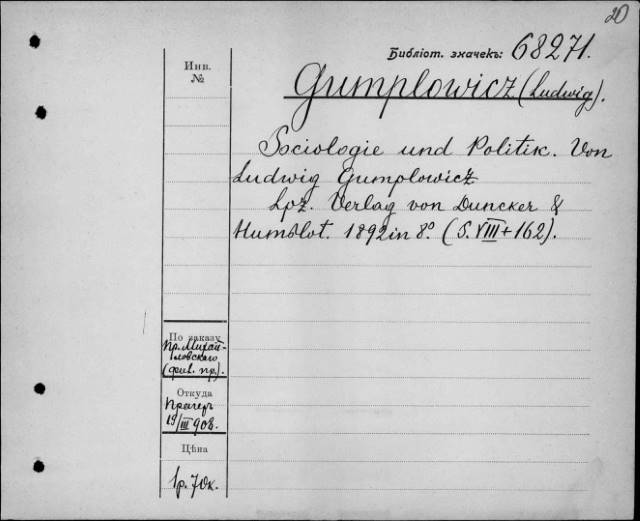 20
Библіот. значекъ: 68271.
Инв.
№
Gumplowicz (Ludwig).
Sociologie und Politik. Von
Ludwig Gumplowicz
Lpz. Verlag von Duncker &
Humblot. 1892 in 8º. (S. VIII + 162).
По заказу
Пр. Михай-
ловскаго
Откуда
Прагеръ
19/III 908.
Цѣна
1 р. 70 к.